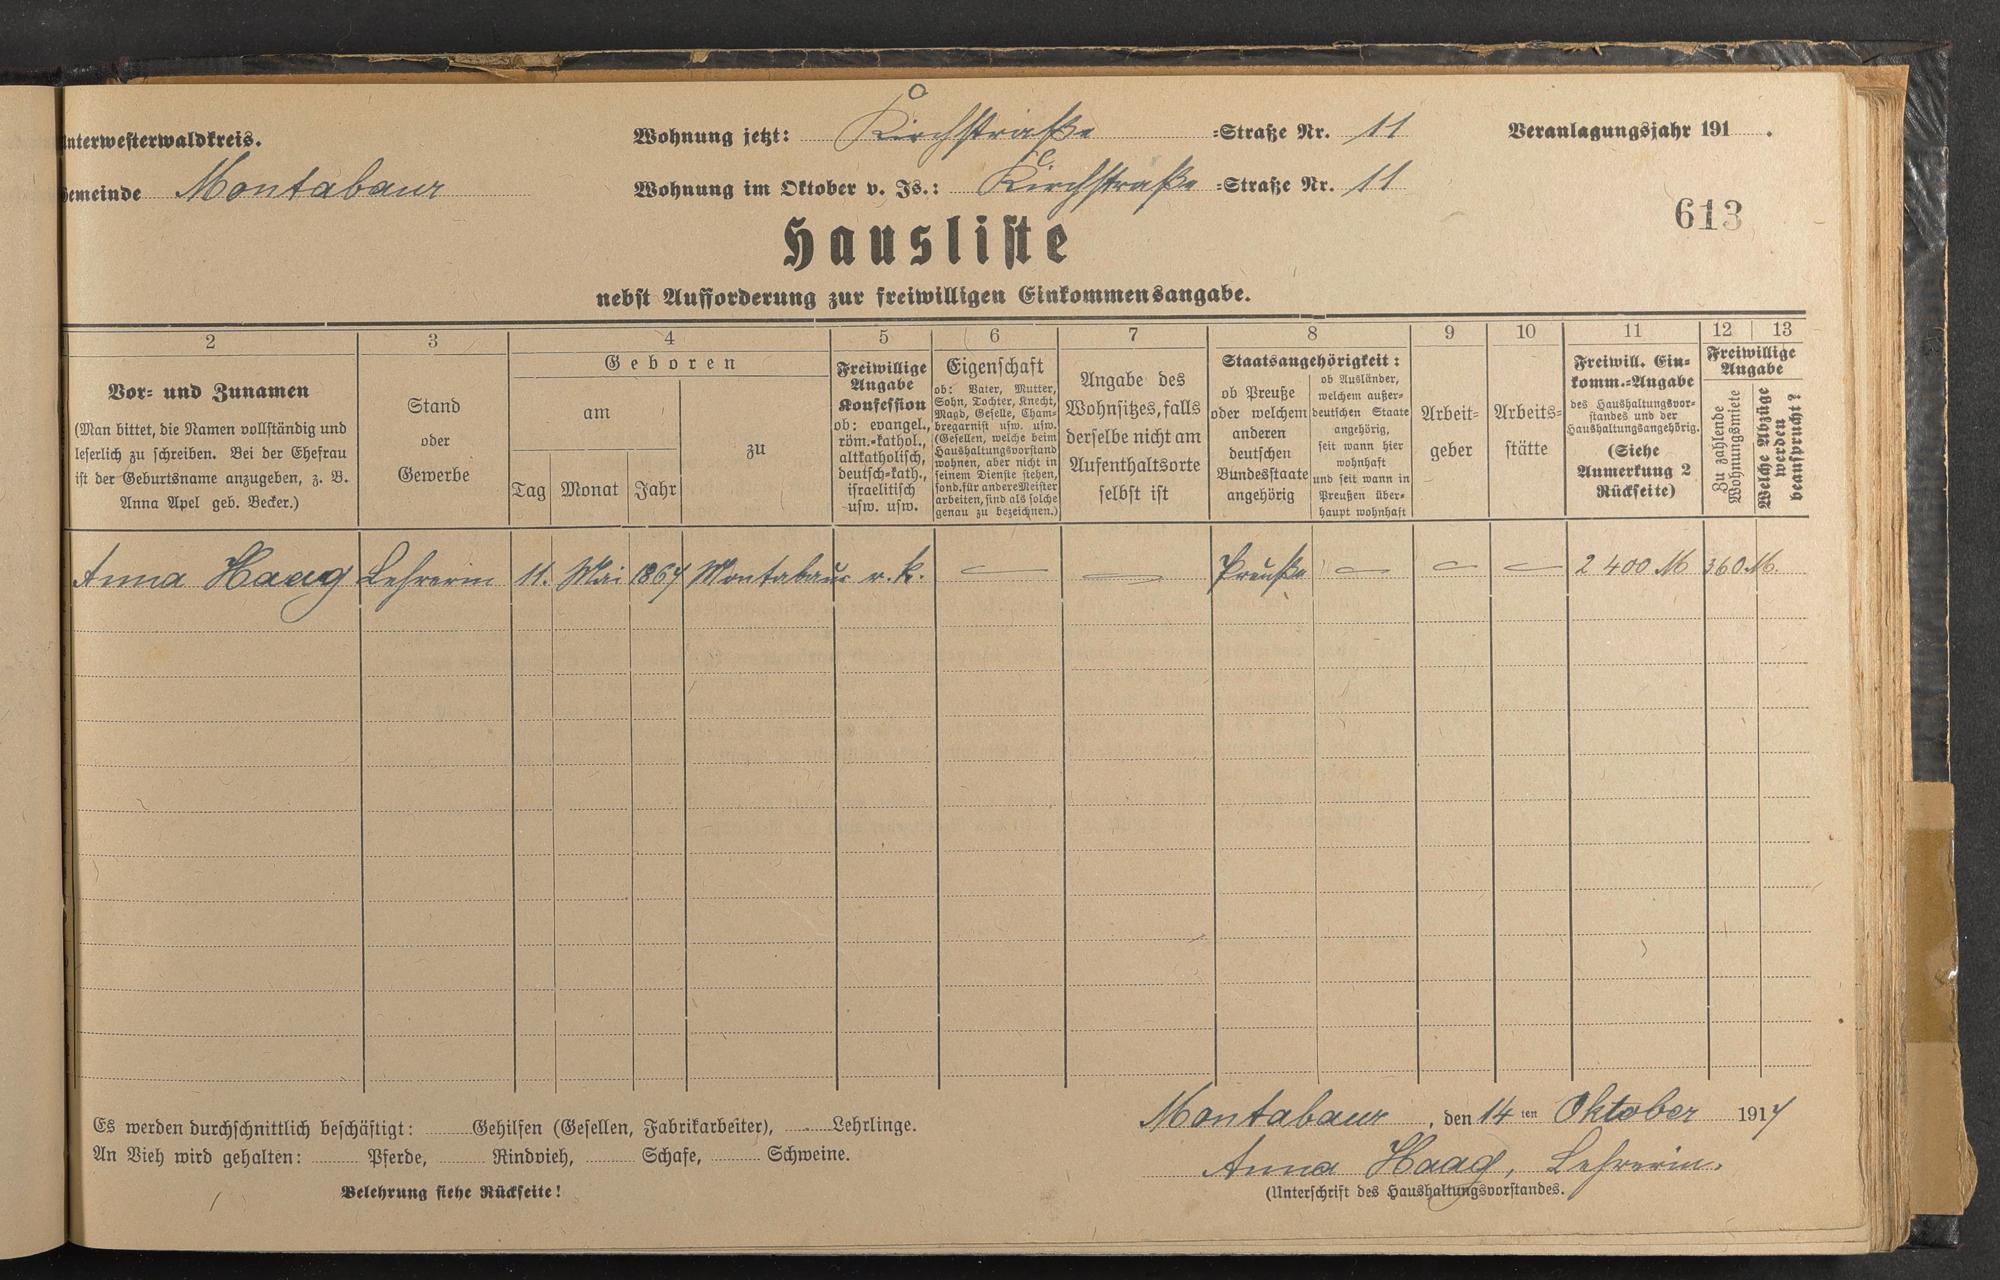 Unterwesterwaldkreis.
Wohnung jetzt: Kirchstraße =Straße Nr. 11
Veranlagungsjahr 191 .
Gemeinde Montabaur
Wohnung im Oktober v. Js.: Kirchstraße =Straße Nr. 11
613
Hausliste
nebst Aufforderung zur freiwilligen Einkommensangabe.
2 3 4 5 6 7 8 9 10 11 12 13
Vor= und Zunamen
(Man bittet, die Namen vollständig und
leserlich zu schreiben. Bei der Ehefrau
ist der Geburtsname anzugeben, z. B.
Anna Apel geb. Becker.)
Stand
oder
Gewerbe
Geboren
am
Tag Monat Jahr
zu
Freiwillige
Angabe
Konfession
ob: evangel.,
röm.=kathol.,
altkatholisch,
deutsch=kath.,
israelitisch
usw. usw.
Eigenschaft
ob: Vater, Mutter,
Sohn, Tochter, Knecht,
Magd, Geselle, Cham=
bregarnist usw. usw.
(Gesellen, welche beim
Haushaltungsvorstand
wohnen, aber nicht in
seinem Dienste stehen,
sond. für andere Meister
arbeiten, sind als solche
genau zu bezeichnen.)
Angabe des
Wohnsitzes, falls
derselbe nicht am
Aufenthaltsorte
selbst ist
Staatsangehörigkeit:
ob Preuße
oder welchem
anderen
deutschen
Bundesstaate
angehörig
ob Ausländer,
welchem außer=
deutschen Staate
angehörig,
seit wann hier
wohnhaft
und seit wann in
Preußen über=
haupt wohnhaft
Arbeit=
geber
Arbeits=
stätte
Freiwill. Ein=
komm.=Angabe
des Haushaltungsvor=
standes und der
Haushaltungsangehörig.
(Siehe
Anmerkung 2
Rückseite)
Freiwillige
Angabe
Zu zahlende
Wohnungsmiete
Welche Abzüge
werden
beansprucht?
Anna Haag Lehrerin 11. Mai 1867 Montabaur r. k. — — Preuße — — — 2 400 M 360 M.
Es werden durchschnittlich beschäftigt: Gehilfen (Gesellen, Fabrikarbeiter), Lehrlinge.
An Vieh wird gehalten: Pferde, Rindvieh, Schafe, Schweine.
Belehrung siehe Rückseite!
Montabaur, den 14 ten Oktober 1917
Anna Haag, Lehrerin.
(Unterschrift des Haushaltungsvorstandes.